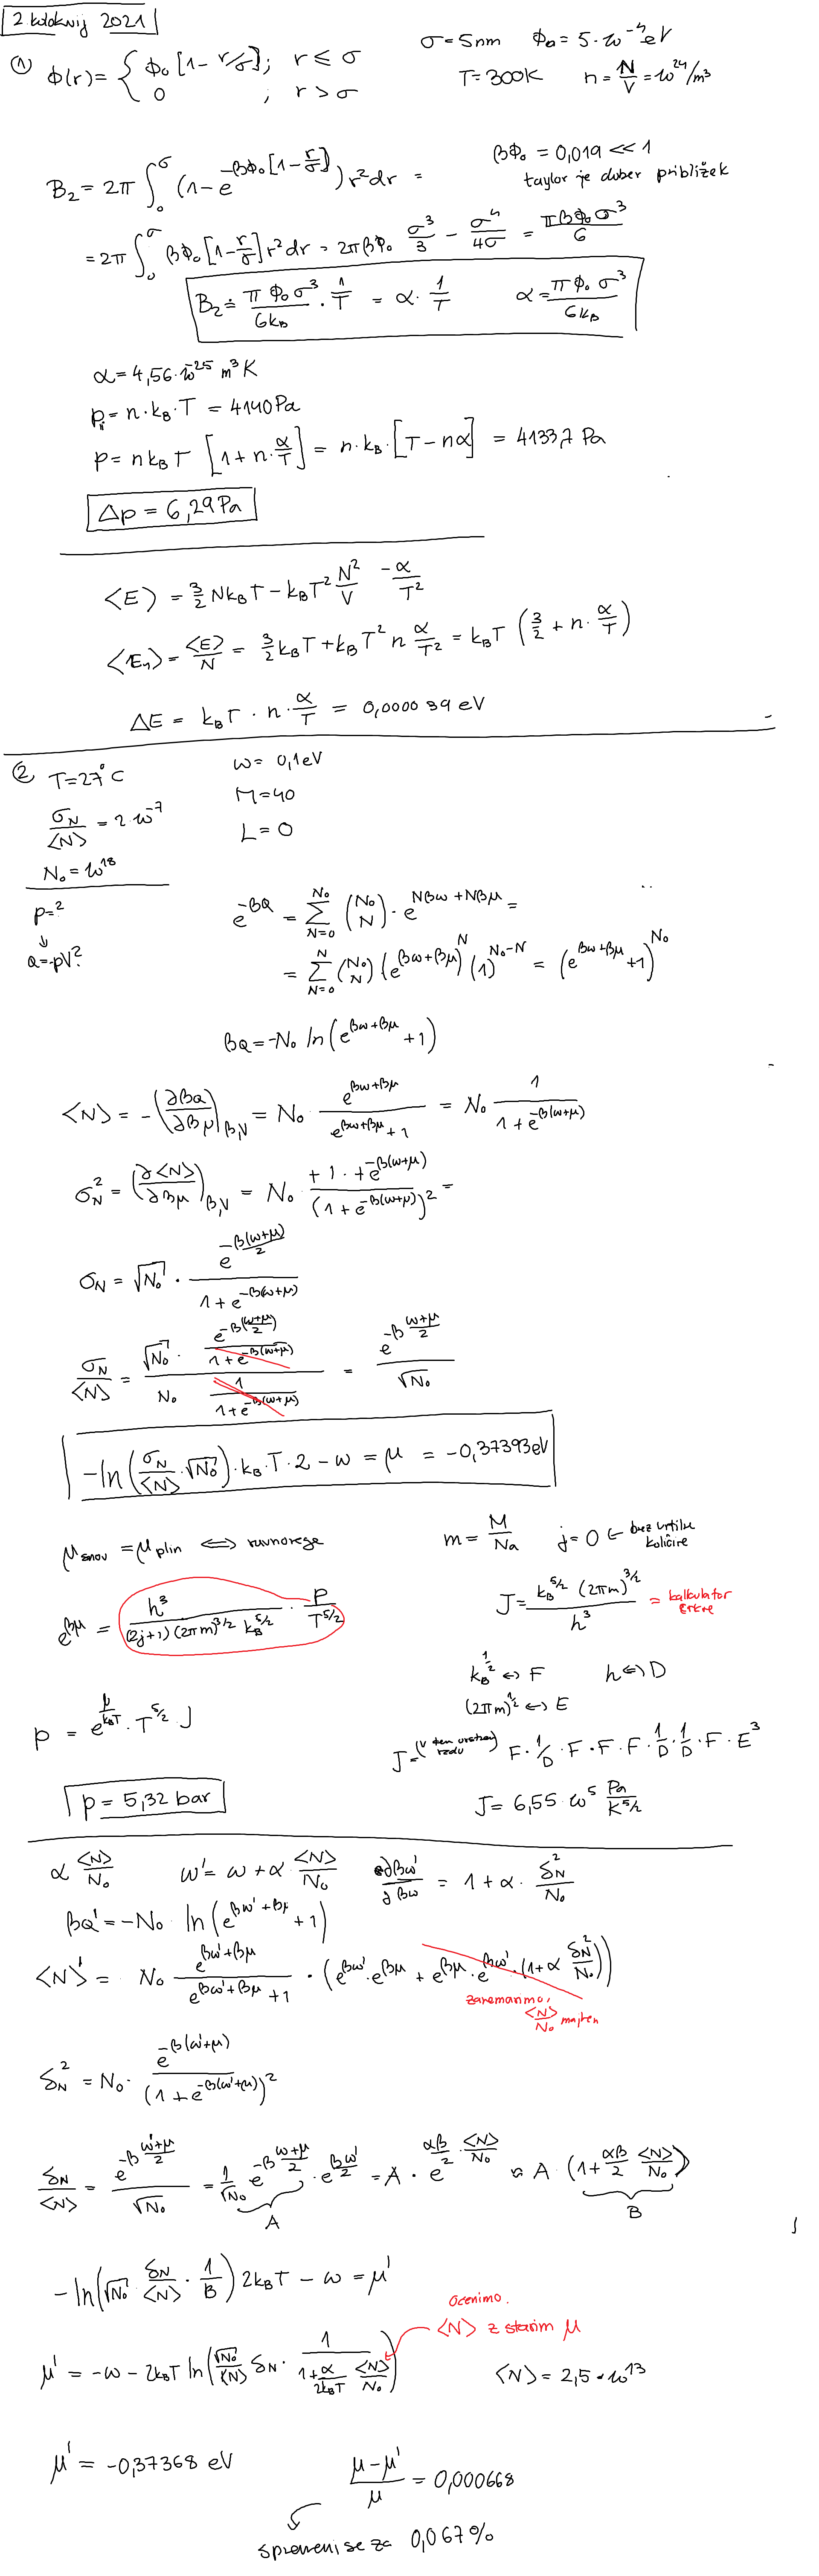 2 kolokvij 2021
① ϕ(r) = { ϕ₀ [1 - r/σ]; r ≤ σ
0 ; r > σ
σ = 5nm ϕ₀ = 5·10⁻⁴eV
T = 300K n = N/V = 10²⁴/m³
B₂ = 2π ∫₀^σ (1 - e^{-βϕ₀[1 - r/σ]}) r² dr =
βϕ₀ = 0,019 << 1
taylor je dober približek
= 2π ∫₀^σ βϕ₀ [1 - r/σ] r² dr = 2πβϕ₀ σ³/3 - σ⁴/4σ = πβϕ₀σ³/6
B₂ = πϕ₀σ³/6k_B · 1/T = α · 1/T α = πϕ₀σ³/6k_B
α = 4,56·10⁻²⁵ m³K
p = n·k_B·T = 4140Pa
p = n k_B T [1 + n·α/T] = n·k_B·[T - nα] = 4133,7 Pa
Δp = 6,29Pa
⟨E⟩ = 3/2 N k_B T - k_B T² N²/V -α/T²
⟨E₁⟩ = ⟨E⟩/N = 3/2 k_B T + k_B T² n α/T² = k_B T (3/2 + n·α/T)
ΔE = k_B T · n · α/T = 0,000039 eV
② T = 27°C
σ_N/⟨N⟩ = 2·10⁻⁷
N₀ = 10¹⁸
p = ?
↓
Q = -pV?
w = 0,1eV
M = 40
L = 0
e^{-βQ} = Σ_{N=0}^{N₀} (N₀ N) · e^{Nβw + Nβμ} =
= Σ_{N=0}^{N} (N₀ N) (e^{βw+βμ})^N (1)^{N₀-N} = (e^{βw+βμ} + 1)^{N₀}
βQ = -N₀ ln(e^{βw+βμ} + 1)
⟨N⟩ = -(∂βQ/∂βμ)_{β,V} = N₀ · e^{βw+βμ}/(e^{βw+βμ} + 1) = N₀ 1/(1 + e^{-β(w+μ)})
σ_N² = (∂⟨N⟩/∂βμ)_{β,V} = N₀ · +1·+e^{-β(w+μ)}/(1 + e^{-β(w+μ)})² =
σ_N = √N₀ · e^{-β(w+μ)/2}/(1 + e^{-β(w+μ)})
σ_N/⟨N⟩ = √N₀ · e^{-β(w+μ)/2}/(1 + e^{-β(w+μ)}) / N₀ 1/(1 + e^{-β(w+μ)}) = e^{-β(w+μ)/2}/√N₀
-ln(σ_N/⟨N⟩ · √N₀) · k_B · T · 2 - w = μ = -0,37393eV
μ_snov = μ_plin ⟺ ravnovesje
m = M/Na j = 0 ← brez vrtilne količine
e^{βμ} = h³/((2j+1)(2πm)^{3/2} k_B^{5/2}) · p/T^{5/2}
J = k_B^{5/2} (2πm)^{3/2}/h³ = kalkulator
k_B^{1/2} ↔ F h ↔ D
(2πm)^{1/2} ↔ E
p = e^{μ/k_BT} · T^{5/2} · J
J = (v tem vrstnem redu) F · 1/D · F · F · F · 1/D · 1/D · F · E³
p = 5,32 bar
J = 6,55·10⁵ Pa/K^{5/2}
α ⟨N⟩/N₀ w' = w + α · ⟨N⟩/N₀ ∂βw'/∂βw = 1 + α · δ_N²/N₀
βQ' = -N₀ · ln(e^{βw'+βμ} + 1)
⟨N⟩' = N₀ e^{βw'+βμ}/(e^{βw'+βμ} + 1) · (e^{βw'} · e^{βμ} + e^{βμ} · e^{βw'} · (1 + α δ_N²/N₀))
zanemarimo, ⟨N⟩/N₀ majhen
δ_N² = N₀ · e^{-β(w'+μ)}/(1 + e^{-β(w'+μ)})²
δ_N/⟨N⟩ = e^{-β(w'+μ)/2}/√N₀ = 1/√N₀ e^{-β(w+μ)/2} · e^{βw'/2} = A · e^{αβ/2 · ⟨N⟩/N₀} ≈ A · (1 + αβ/2 ⟨N⟩/N₀)
A B
-ln(√N₀ δ_N/⟨N⟩ · 1/B) 2k_BT - w = μ'
Ocenimo.
⟨N⟩ z starim μ
μ' = -w - 2k_BT ln(√N₀/⟨N⟩ δ_N · 1/(1 + α/2k_BT ⟨N⟩/N₀))
⟨N⟩ = 2,5·10¹³
μ' = -0,37368 eV
(μ - μ')/μ = 0,000668
spremeni se za 0,067%